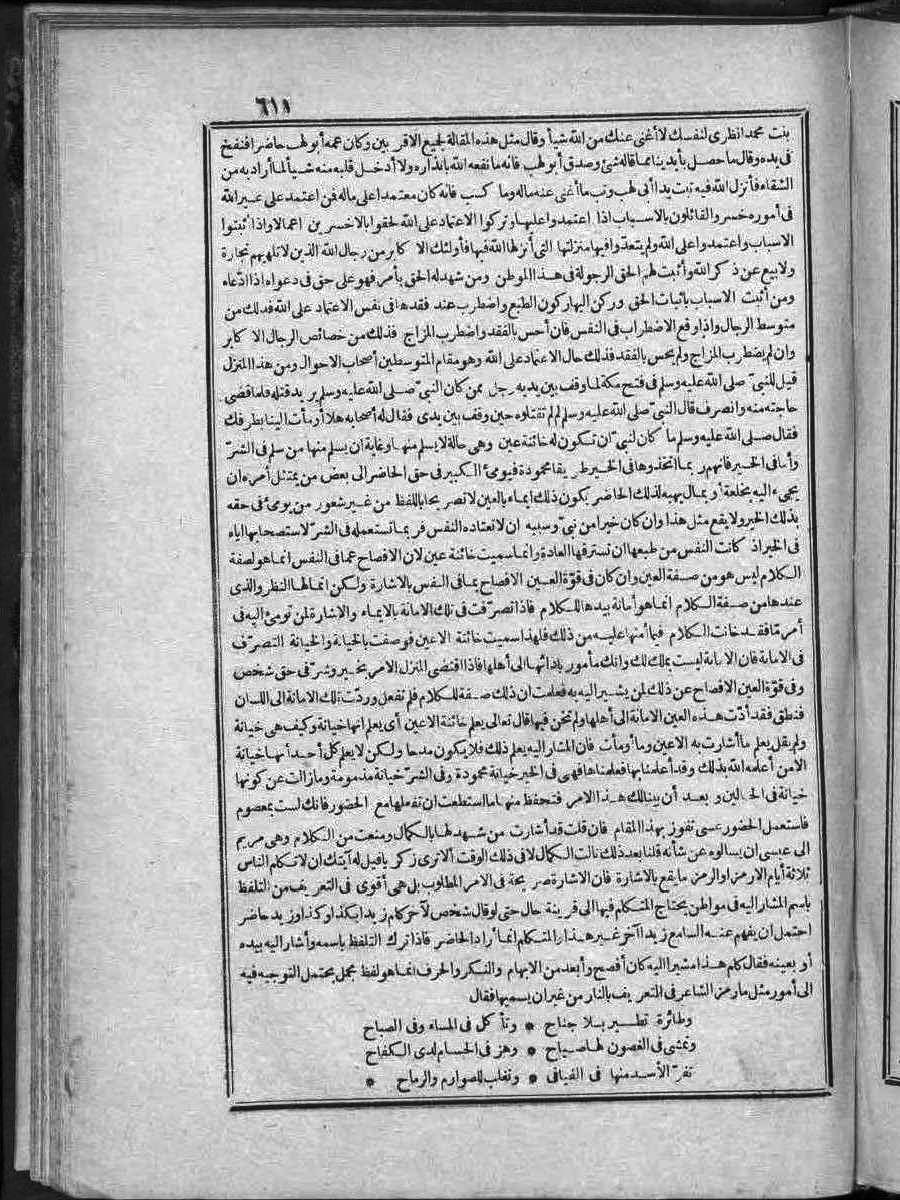 ٦١١
بنت محمد انظرى لنفسك لا أغنى عنك من الله شيأ وقال مثل هذه المقالة لجميع الاقربين وكان عمه أبو لهب حاضرا فنفخ
فى يده وقال ما حصل بأيدينا مما قاله شئ وصدق أبو لهب فانه ما نفعه الله بانذاره ولا أدخل قلبه منه شيأ لما أراد به من
الشقاء فأنزل الله فيه تبت يدا أبى لهب وتب ما أغنى عنه ماله وما كسب فانه كان معتمدا على ماله فمن اعتمد على غير الله
فى أموره خسر والقائلون بالاسباب اذا اعتمدوا عليها وتركوا الاعتماد على الله لحقوا بالاخسرين اعمالا واذا أثبتوا
الاسباب واعتمدوا على الله ولم يتعدّوا فيها منزلتها التى أنزلها الله فيها فأولئك الاكابر من رجال الله الذين لا تلهيهم تجارة
ولا بيع عن ذكر الله وأثبت لهم الحق الرجولة فى هذا الموطن ومن شهد له الحق بأمر فهو على حق فى دعواه اذا ادّعاه
ومن أثبت الاسباب باثبات الحق وركن اليها ركون الطبع واضطرب عند فقدها فى نفس الاعتماد على الله فذلك من
متوسط الرجال واذا وقع الاضطراب فى النفس فان أحس بالفقد واضطرب المزاج فذلك من خصائص الرجال الاكابر
وان لم يضطرب المزاج ولم يحس بالفقد فذلك حال الاعتماد على الله وهو مقام المتوسطين أصحاب الاحوال ومن هذا المنزل
قيل للنبىّ صلى الله عليه وسلم فى فتح مكة لما وقف بين يديه رجل ممن كان النبىّ صلى الله عليه وسلم يريد قتله فلما قضى
حاجته منه وانصرف قال النبىّ صلى الله عليه وسلم لم لم تقتلوه حين وقف بين يدى فقال له أصحابه هلا أومأت الينا بطرفك
فقال صلى الله عليه وسلم ما كان لنبىّ ان تكون له خائنة عين وهى حالة لا يسلم منها وغاية ان يسلم منها من سلم فى الشرّ
وأما فى الخير فانهم ربما اتخذوها فى الخير طريقا محمودة فيومئ الكبير فى حق الحاضر الى بعض من يمتثل أمره ان
يجىء اليه بخلعة أو بمال يهبه لذلك الحاضر يكون ذلك ايماء بالعين لا تصريحا باللفظ من غير شعور من يومئ فى حقه
بذلك الخير ولا يقع مثل هذا وان كان خيرا من نبىّ وسببه ان لا تعتاده النفس فربما تستعمله فى الشرّ لاستصحابها اياه
فى الخير اذ كانت النفس من طبعها ان تسترقها العادة وانما سميت خائنة عين لان الافصاح عما فى النفس انما هو لصفة
الكلام ليس هو من صفة العين وان كان فى قوّة العين الافصاح بما فى النفس بالاشارة ولكن انما لها النظر والذى
عندها من صفة الكلام انما هو أمانة بيدها للكلام فاذا تصرّفت فى تلك الامانة بالايماء والاشارة لمن تومئ اليه فى
أمر مّا فقد خانت الكلام فيما أمنها عليه من ذلك فلهذا سميت خائنة الاعين فوصفت بالخيانة والخيانة التصرّف
فى الامانة فان الامانة ليست بملك لك وانك مأمور بادائها الى أهلها فاذا اقتضى المنزل الامر بخير وشرّ فى حق شخص
وفى قوّة العين الافصاح عن ذلك لمن يشير اليه به فعلمت ان ذلك صفة للكلام فلم تفعل وردّت تلك الامانة الى اللسان
فنطق فقد أدّت هذه العين الامانة الى أهلها ولم تخن فيها قال تعالى يعلم خائنة الاعين أى يعلم انها خيانة وكيف هى خيانة
ولم يقل يعلم ما أشارت به الاعين وما أومأت فان المشار اليه يعلم ذلك فلا يكون مدحا ولكن لا يعلم كل أحد أنها خيانة
الا من أعلمه الله بذلك وقد أعلمنا بها فعلمناها فهى فى الخير خيانة محمودة وفى الشرّ خيانة مذمومة وما زالت عن كونها
خيانة فى الحالين وبعد أن بينا لك هذا الامر فتحفظ منها ما استطعت ان تفعلها مع الحضور فانك لست بمعصوم
فاستعمل الحضور عسى تفوز بهذا المقام فان قلت قد أشارت من شهد لها بالكمال ومنعت من الكلام وهى مريم
الى عيسى ان يسالوه عن شأنه قلنا بعد ذلك نالت الكمال لا فى ذلك الوقت ألا ترى زكريا قيل له آيتك ان لا تكلم الناس
ثلاثة أيام الا رمزا والرمز ما يقع بالاشارة فان الاشارة صريحة فى الامر المطلوب بل هى أقوى فى التعريف من التلفظ
باسم المشار اليه فى مواطن يحتاج المتكلم فيها الى قرينة حال حتى لو قال شخص لآخر كلم زيدا بكذا وكذا وزيد حاضر
احتمل ان يفهم عنه السامع زيدا آخر غير هذا المتكلم انما أراد الحاضر فاذا ترك التلفظ باسمه وأشار اليه بيده
أو بعينه فقال كلم هذا مشيرا اليه كان أفصح وأبعد من الابهام والنكر والحرف انما هو لفظ مجمل يحتمل التوجيه فيه
الى أمور مثل ما رمز الشاعر فى التعريف بالنار من غير ان يسميها فقال
وطائرة تطير بلا جناح * وتأكل فى المساء وفى الصباح
وتمشى فى الغصون لها صياح * وهز فى الحسام لدى الكفاح
تفرّ الأسد منها فى الفيافى * وتغلب للصوارم والرماح *